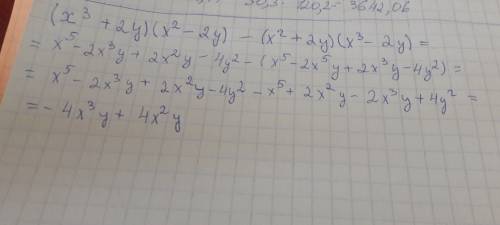 30,3 120,2 = 3642,06
(x³ + 2y)(x² - 2y) - (x² + 2y)(x³ - 2y) =
= x⁵ - 2x³y + 2x²y - 4y² - (x⁵ - 2x⁵y + 2x³y - 4y²) =
= x⁵ - 2x³y + 2x²y - 4y² - x⁵ + 2x²y - 2x³y + 4y² =
= - 4x³y + 4x²y